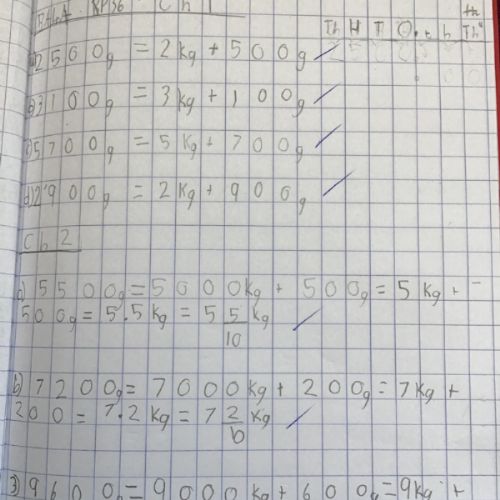 RP36 Ch 1
Th H T O . t h th
a) 2500g = 2kg + 500g
b) 3100g = 3kg + 100g
c) 5700g = 5kg + 700g
d) 2900g = 2kg + 900g
Ch 2
a) 5500g = 5000kg + 500g = 5kg +
500g = 5.5kg = 5 5/10 kg
b) 7200g = 7000kg + 200g = 7kg +
200 = 7.2kg = 7 2/10 kg
3) 9600g = 9000kg + 600g = 9kg +